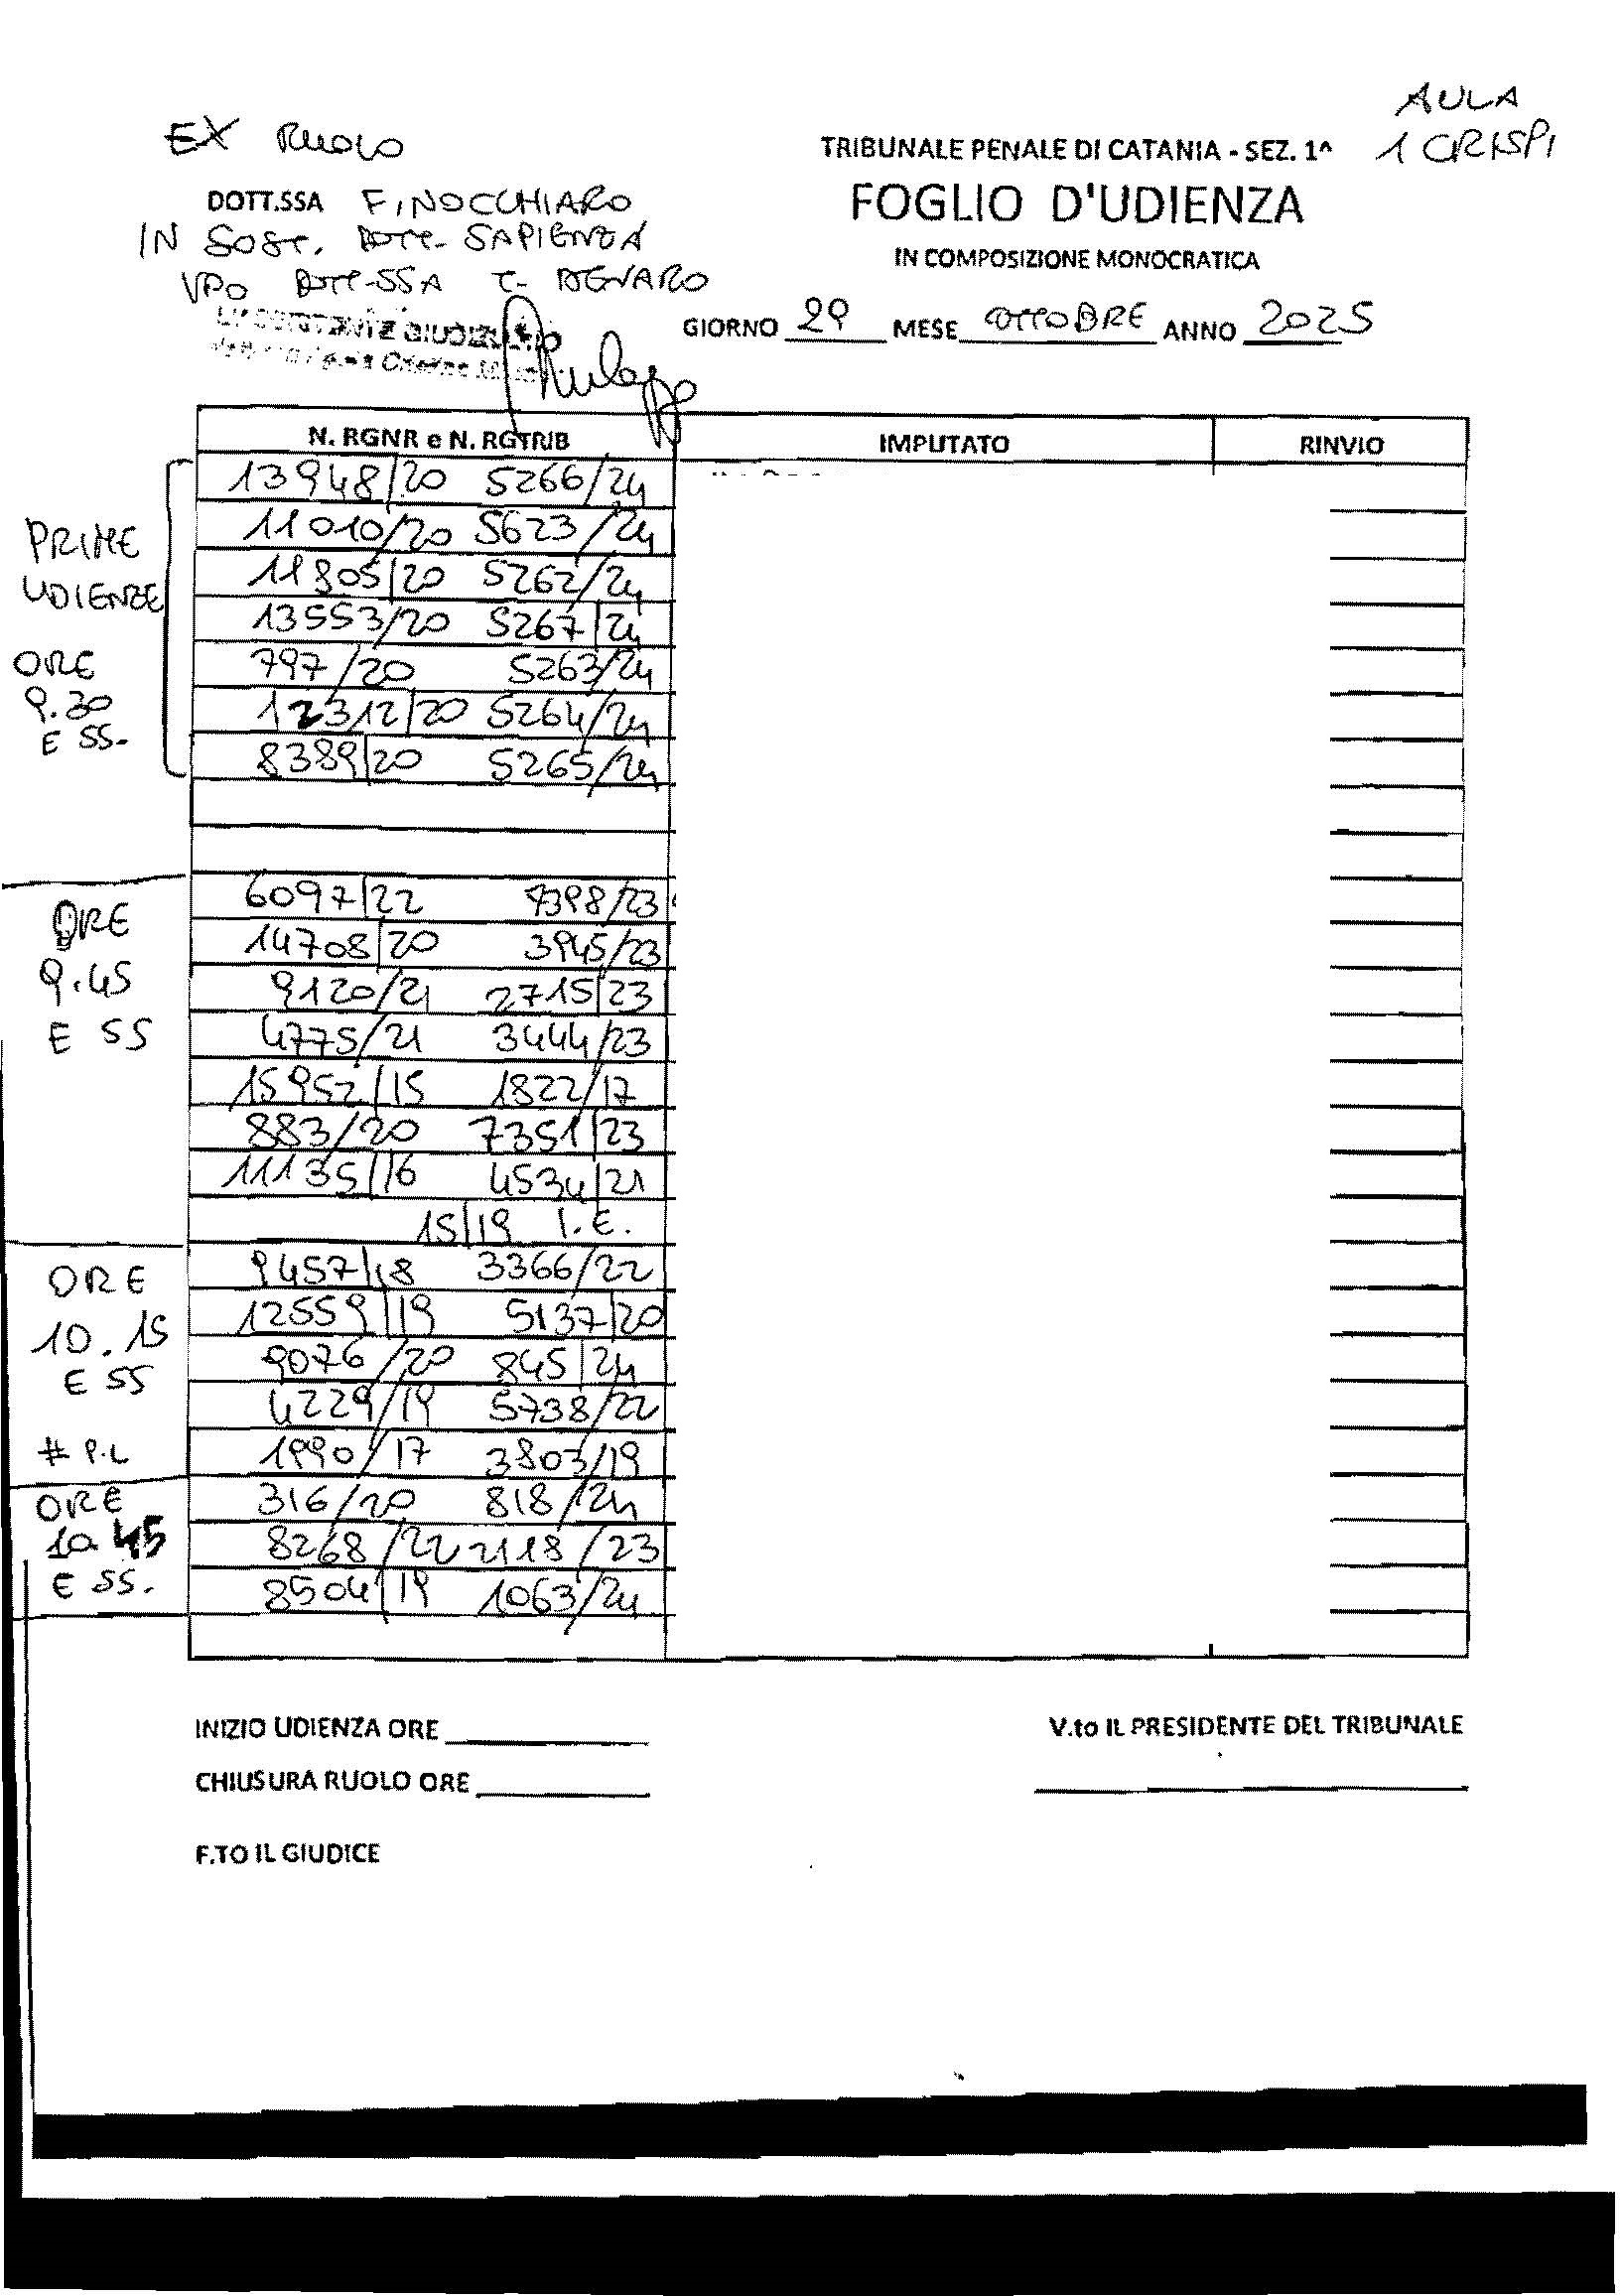 AULA
EX RUOLO
TRIBUNALE PENALE DI CATANIA - SEZ. 1^ 1 CRISPI
DOTT.SSA FINOCCHIARO
FOGLIO D'UDIENZA
IN SOST. DOTT. SAPIENZA
IN COMPOSIZIONE MONOCRATICA
VPO DOTT.SSA
GIORNO 29 MESE OTTOBRE ANNO 2025
N. RGNR e N. RGTRIB IMPUTATO RINVIO
PRIME
UDIENZE
ORE
9.30
E SS.
13948/20 5266/24
11010/20 5623/24
11805/20 5262/24
13553/20 5267/24
797/20 5263/24
12312/20 5264/24
8389/20 5265/24
ORE
9.45
E SS
6097/22 7398/23
14708/20 3945/23
9120/21 2715/23
4775/21 3444/23
15952/15 1822/17
883/20 7351/23
11135/16 4534/21
15/19 I.E.
ORE
10.15
E SS
# P.L
9457/18 3366/22
12559/19 5137/20
9076/20 845/24
4229/19 5738/22
1990/17 3803/19
ORE
10 45
E SS.
316/20 818/24
8268/22 2118/23
8504/19 1063/24
INIZIO UDIENZA ORE
V.to IL PRESIDENTE DEL TRIBUNALE
CHIUSURA RUOLO ORE
F.TO IL GIUDICE